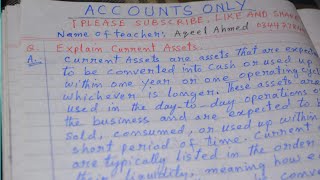 ACCOUNTS ONLY
(PLEASE SUBSCRIBE, LIKE AND SHARE
Name of teacher: Aqeel Ahmed
Q. Explain Current Assets.
A. Current Assets are assets that are expected
to be converted into cash or used up
within one year or one operating cycle
whichever is longer. These assets are
used in the day-to-day operations of
the business and are expected to be
sold, consumed, or used up within
short period of time. Current
are typically listed in the order
their liquidity, meaning how